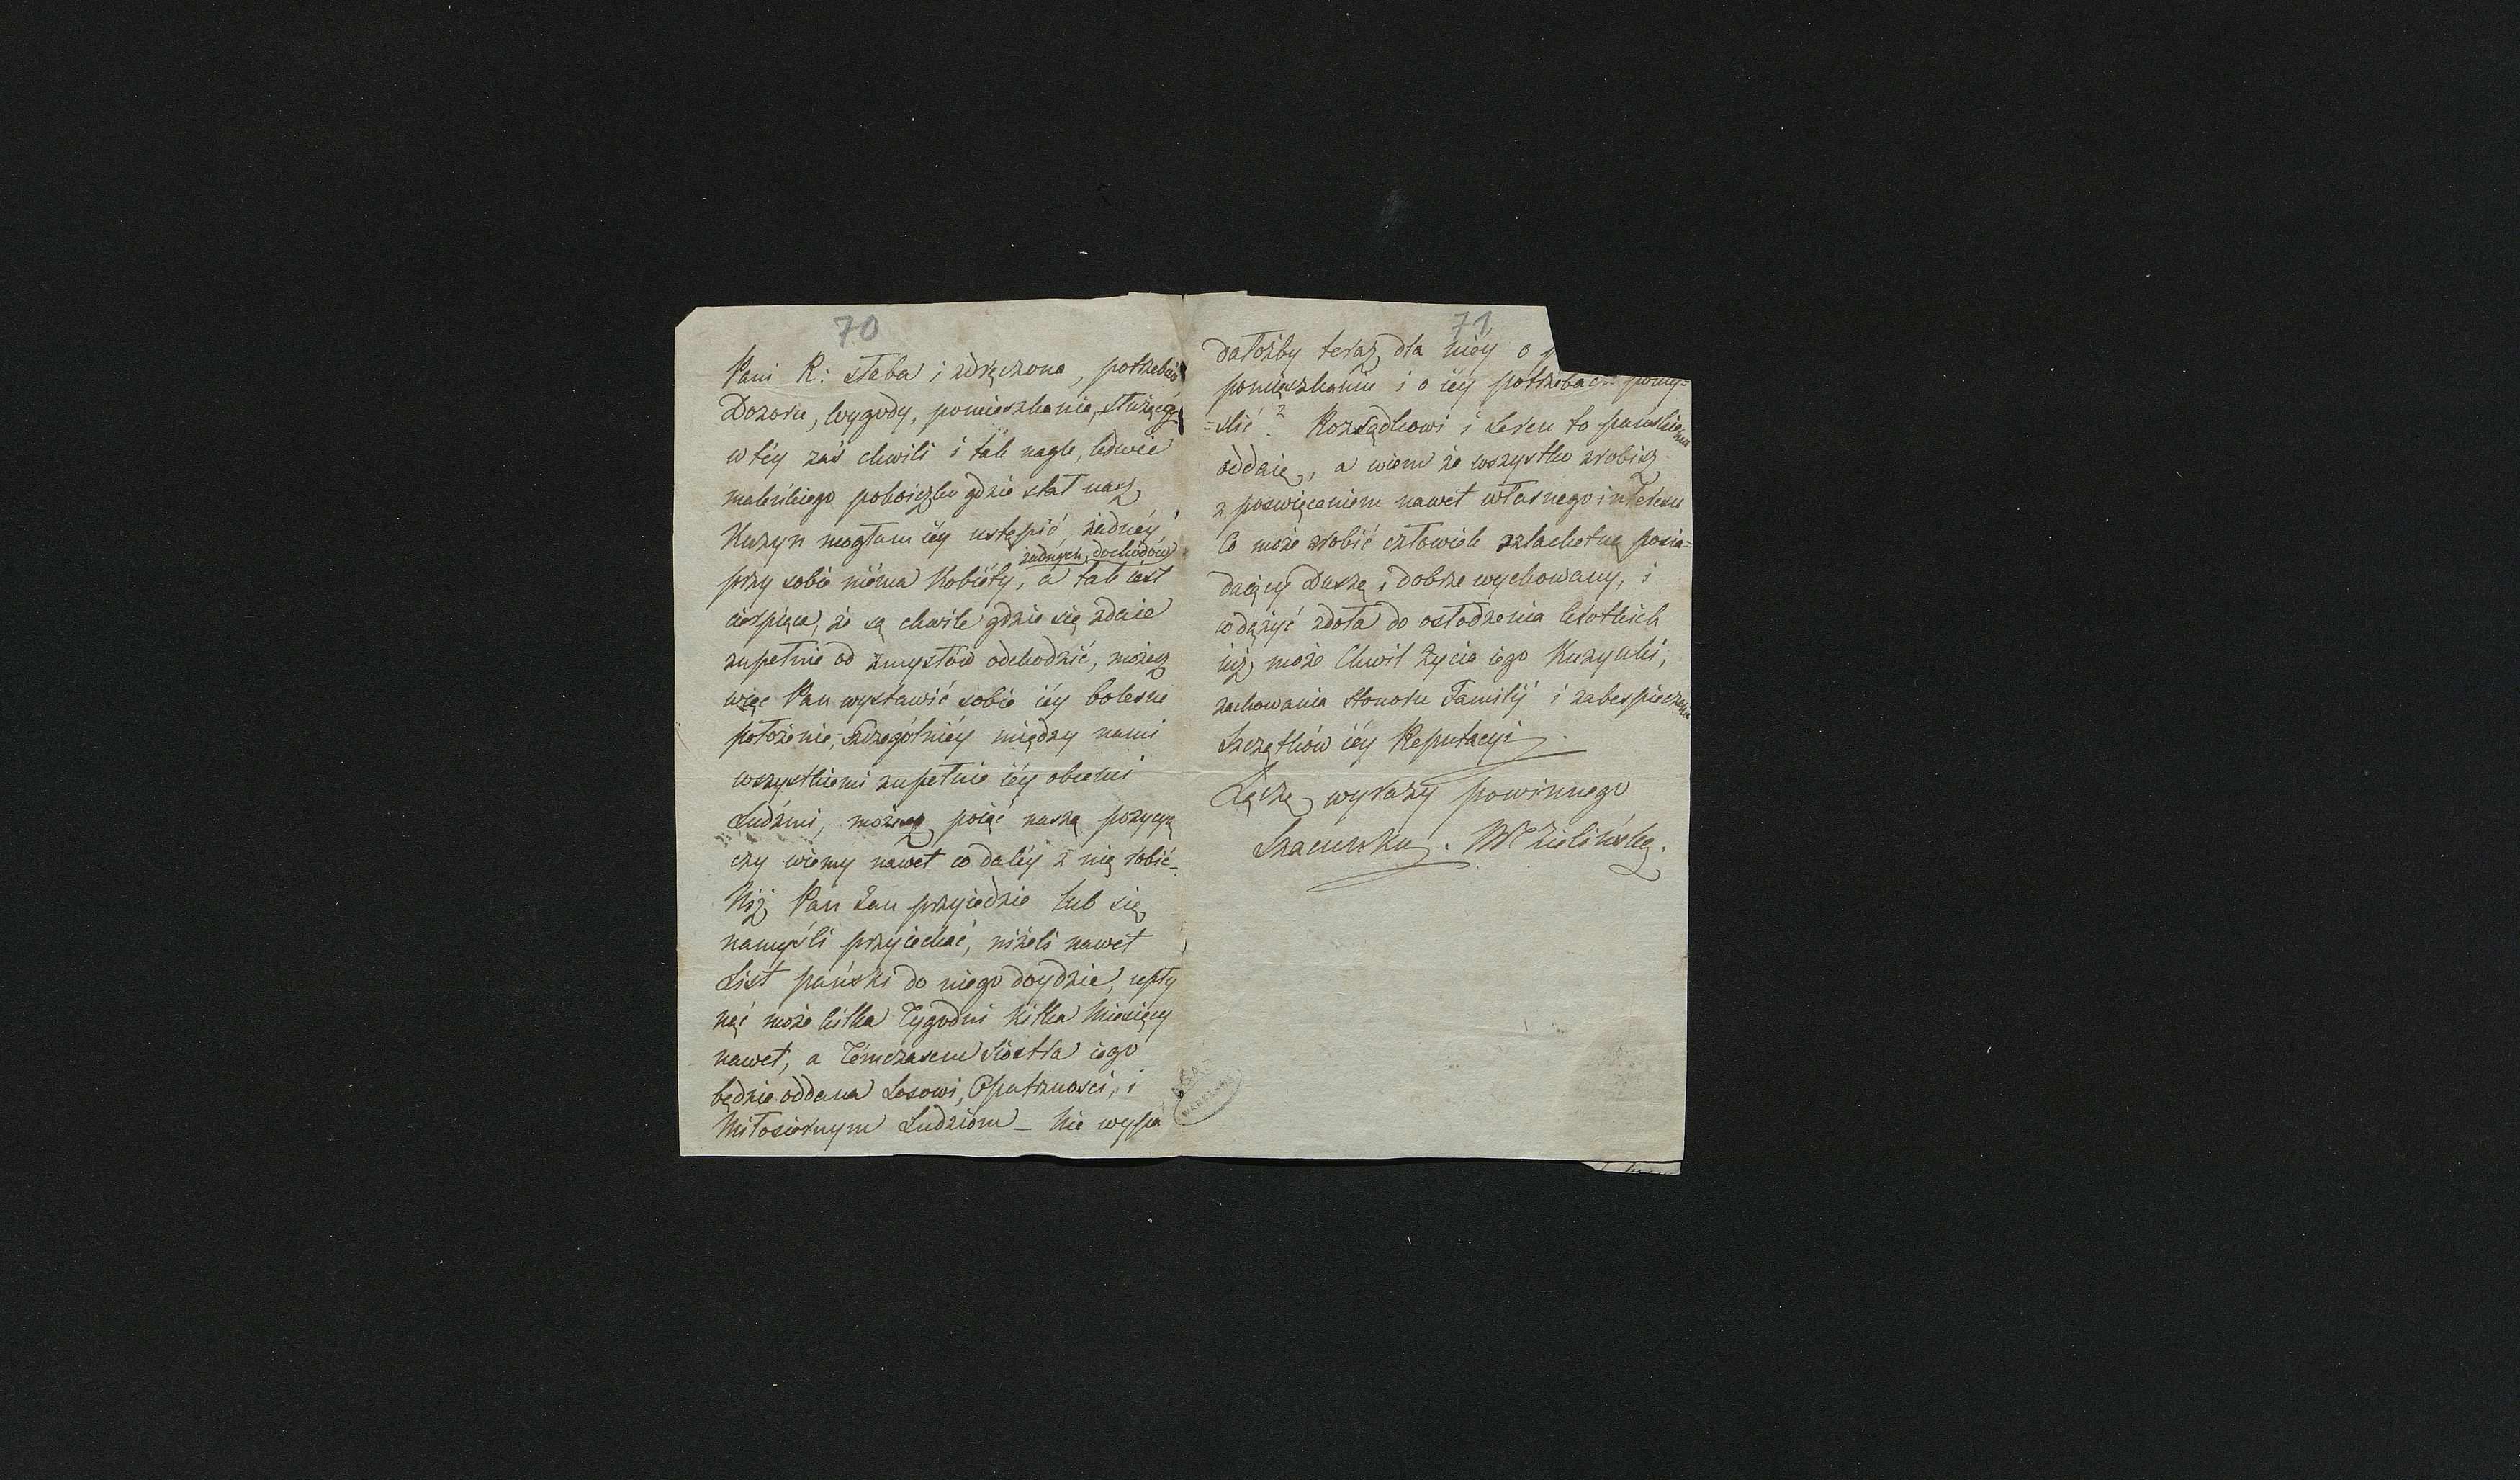 70
Pani R: słaba i zdręczona, potrzebuie
Dozoru, wygody, pomieszkania, służącey
w téy zaś chwili i tak nagle, ledwie
maleńkiego pokoiczku gdzie stał nasz
Kuzyn mogłam iéy ustąpić, żadnéy
żadnych dochodów
przy sobie niéma Kobiéty, a tak iest
cierpiąca, że są chwile gdzie się zdaie
zupełnie od zmysłów odchodzić, możesz
więc Pan wystawić sobie iéy bolesne
położenie, szczególniéy między nami
wszystkiemi zupełnie iéy obcemi
Ludźmi, możesz poiąć naszą pozycyą
czy wiemy nawet co daléy z nią robić-
Niż Pan Jan przyiedzie lub się
namyśli przyiechać, niżeli nawet
List pański do niego doydzie, upły
nąć może kilka Tygodni kilka Miesięcy
nawet, a Témczasem Siostra iego
będzie oddana Losowi, Opatrzności, i
Miłosiernym Ludziom - Nie wypa
71
dałożby teraz dla niéy o
pomięszkanie i o iéy potrzebach pomy=
=slić? Rozsądkowi i Sercu to pańskiemu
oddaię, a wiem że wszystko zrobisz
z poswięceniem nawet własnego interesu
Co może zrobić człowiek szlachetną posia=
daiący Duszę i dobrze wychowany, i
co dążyć zdoła do osłodzenia krótkich
iuż może Chwil życia iego Kuzynki,
zachowania Honoru Familij i zabespieczenia
Szczątków iéy Reputacyi.
Łączę wyrazy powinnego
Szacunku. M Zielińska.
AGAD
WARSZAWA